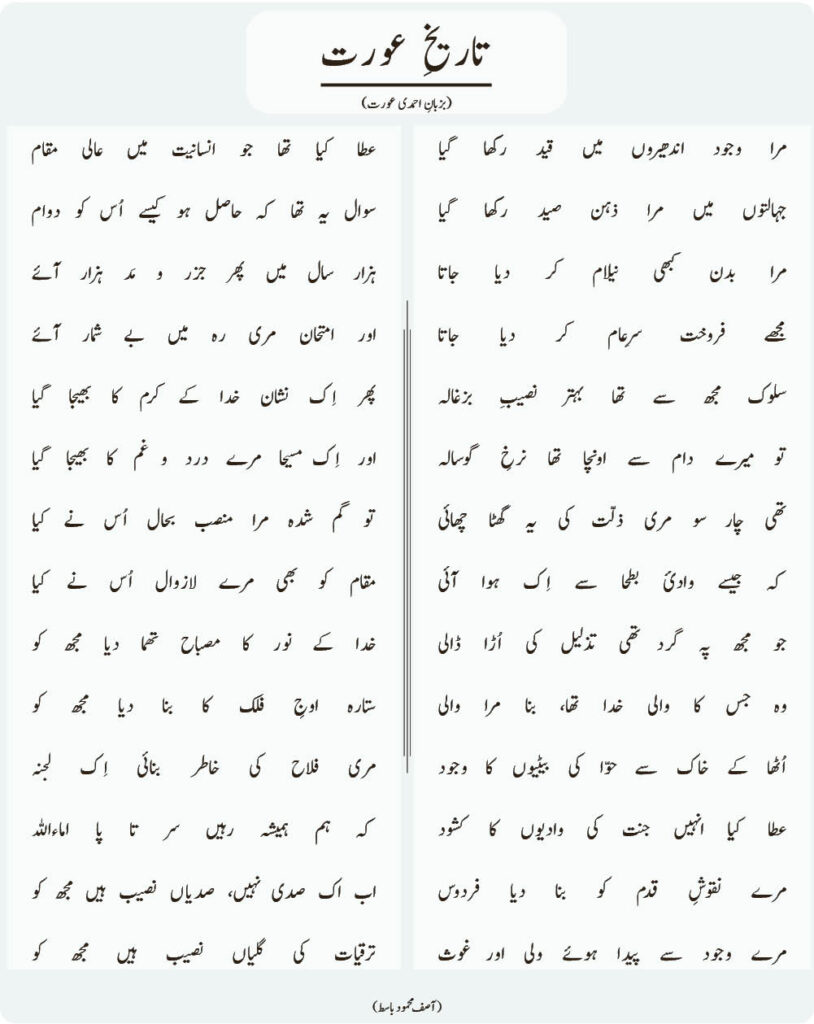 تاریخِ عورت
(بزبانِ احمدی عورت)
مرا وجود اندھیروں میں قید رکھا گیا
جہالتوں میں مرا ذہن صید رکھا گیا
مرا بدن کبھی نیلام کر دیا جاتا
مجھے فروخت سرِعام کر دیا جاتا
سلوک مجھ سے تھا بہتر نصیبِ بزغالہ
تو میرے دام سے اونچا تھا نرخِ گوسالہ
تھی چار سو مری ذلّت کی یہ گھٹا چھائی
کہ جیسے وادئ بطحا سے اِک ہوا آئی
جو مجھ پہ گرد تھی تذلیل کی اُڑا ڈالی
وہ جس کا والی خدا تھا، بنا مرا والی
اُٹھا کے خاک سے حوّا کی بیٹیوں کا وجود
عطا کیا انہیں جنت کی وادیوں کا کشود
مرے نقوشِ قدم کو بنا دیا فردوس
مرے وجود سے پیدا ہوئے ولی اور غوث
عطا کیا تھا جو انسانیت میں عالی مقام
سوال یہ تھا کہ حاصل ہو کیسے اُس کو دوام
ہزار سال میں پھر جزر و مَد ہزار آئے
اور امتحان مری رہ میں بے شمار آئے
پھر اِک نشان خدا کے کرم کا بھیجا گیا
اور اِک مسیحا مرے درد و غم کا بھیجا گیا
تو گم شدہ مرا منصب بحال اُس نے کیا
مقام کو بھی مرے لازوال اُس نے کیا
خدا کے نور کا مصباح تھما دیا مجھ کو
ستارہ اوجِ فلک کا بنا دیا مجھ کو
مری فلاح کی خاطر بنائی اِک لجنہ
کہ ہم ہمیشہ رہیں سر تا پا اماءاللہ
اب اک صدی نہیں، صدیاں نصیب ہیں مجھ کو
ترقیات کی گلیاں نصیب ہیں مجھ کو
(آصف محمود باسط)